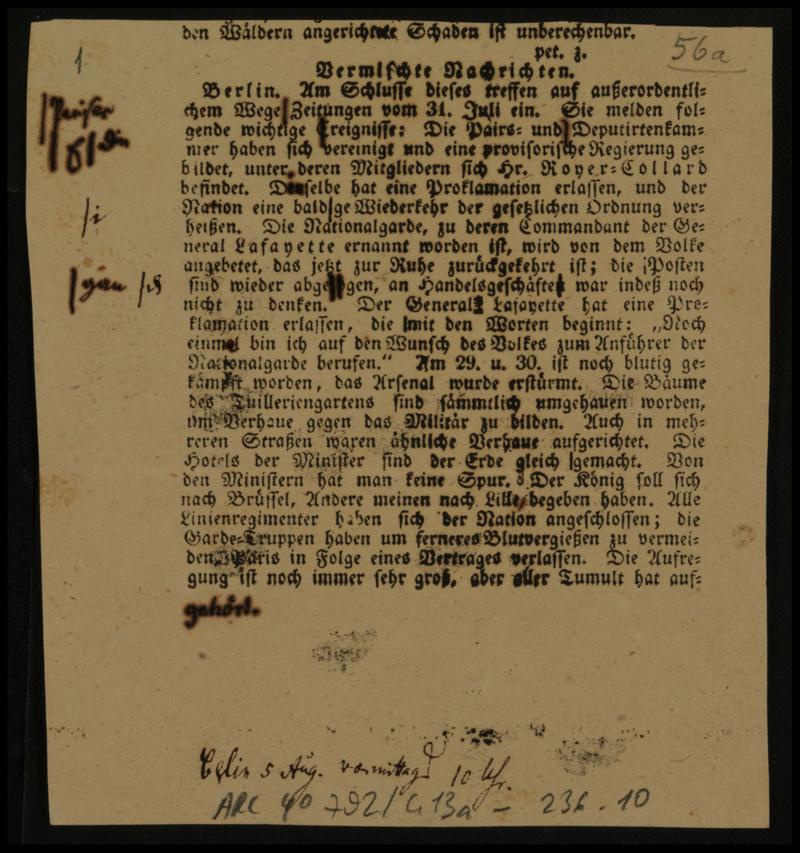 den Wäldern angerichtete Schaden ist unberechenbar.
pet. z.
56a
1
Vermischte Nachrichten.
Berlin. Am Schlusse dieses treffen auf außerordentli=
chem Wege Zeitungen vom 31. Juli ein. Sie melden fol=
gende wichtige Ereignisse: Die Pairs= und Deputirtenkam=
mer haben sich vereinigt und eine provisorische Regierung ge=
bildet, unter deren Mitgliedern sich Hr. Royer=Collard
befindet. Derselbe hat eine Proklamation erlassen, und der
Nation eine baldige Wiederkehr der gesetzlichen Ordnung ver=
heißen. Die Nationalgarde, zu deren Commandant der Ge=
neral Lafayette ernannt worden ist, wird von dem Volke
angebetet, das jetzt zur Ruhe zurückgekehrt ist; die Posten
sind wieder abgegangen, an Handelsgeschäfte war indeß noch
nicht zu denken. Der General Lafayette hat eine Pro=
klamation erlassen, die mit den Worten beginnt: „Noch
einmal bin ich auf den Wunsch des Volkes zum Anführer der
Nationalgarde berufen.“ Am 29. u. 30. ist noch blutig ge=
kämpft worden, das Arsenal wurde erstürmt. Die Bäume
des Tuilleriengartens sind sämmtlich umgehauen worden,
um Verhaue gegen das Militär zu bilden. Auch in meh=
reren Straßen waren ähnliche Verhaue aufgerichtet. Die
Hotels der Minister sind der Erde gleich gemacht. Von
den Ministern hat man keine Spur. Der König soll sich
nach Brüssel, Andere meinen nach Lille begeben haben. Alle
Linienregimenter haben sich der Nation angeschlossen; die
Garde=Truppen haben um ferneres Blutvergießen zu vermei=
den Paris in Folge eines Vertrages verlassen. Die Aufre=
gung ist noch immer sehr groß, aber aller Tumult hat auf=
gehört.
5 Aug. vormittags 10 Uhr.
ARC 40 792/C13a - 236.10